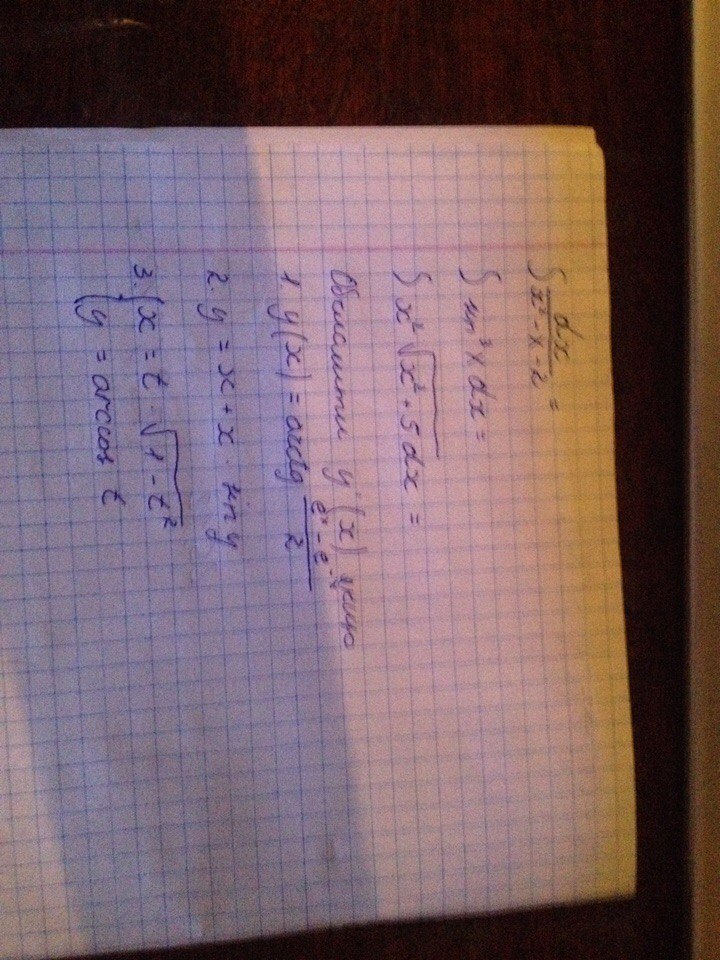 ∫ dx / (x² - x - 2) =
∫ sin³ x dx =
∫ x² √(x² + 5) dx =
Обчислити y'(x) якщо
1 y(x) = arctg (eˣ - e⁻ˣ) / 2
2 y = x + x · sin y
3. { x = t · √(1 - t²)
{ y = arccos t